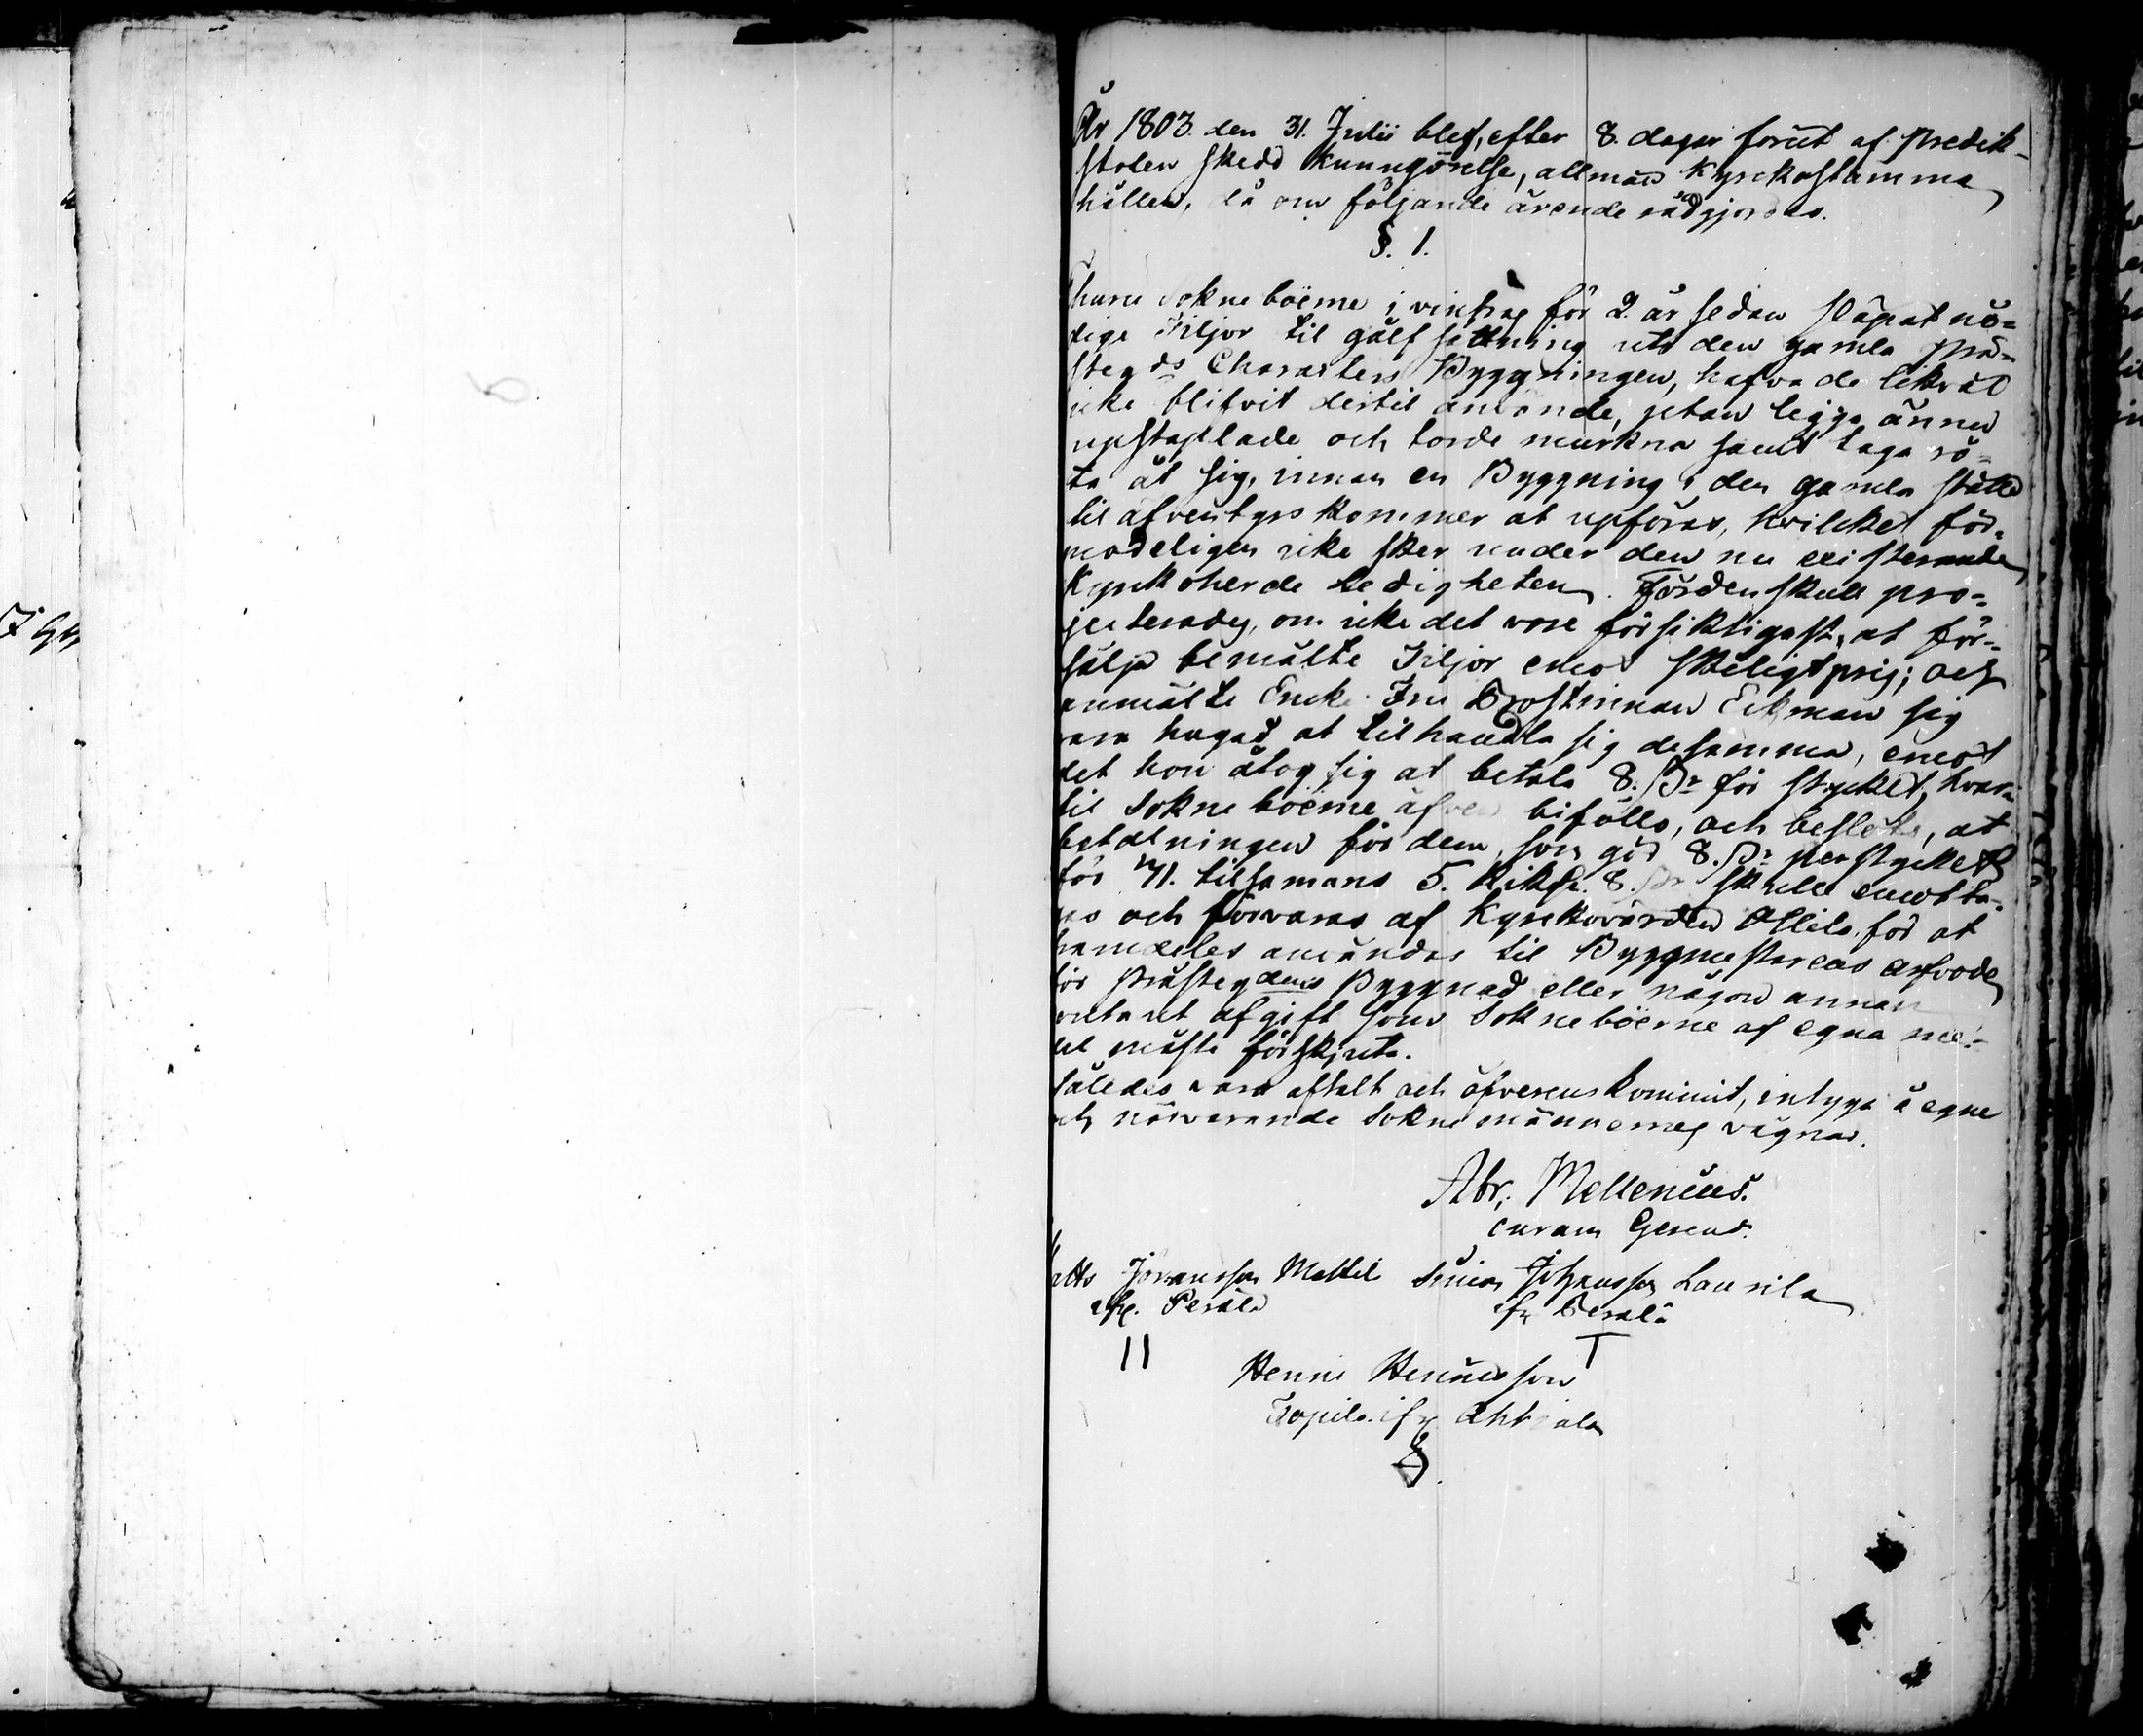 År 1803. den 31. Julii blef, efter 8. dagar förut af Predik-
stolen skedd kunngörelse, allmän Kyrckostämma
hållen, då om följande ärende rådgjordes.
§. 1.
huru Sokneboërne i vintras för 2. år sedan släpat nö=
dige Tiljor til gålfsättning uti den gamla Prä-
stegds Characters Byggningen, hafva de likväl
icke blifvit dertil använde, utan ligga ännu
upstaplade och torde murkna samt taga rö=
ta åt sig, innan en Byggning i den gamlas ställe
til äfventyrs kommer at upföras, hvilcket för=
modeligen icke sker under den nu existerande
Kyrkoherde Ledigheten. Fördenskull pro-
jecterades, om icke det vore försiktigast, at för-
sälja bemälte Tiljor emot skäligt pris; och
anmälte Encke Fru Prostinnan Eckman sig
vara hugad at tilhandla sig desamma, emot
det hon åtog sig at betala 8. sr för stycket, hvar-
til Sokneboërne äfven biföllo, och beslöts, at
betalningen för dem, som gör 8. sr per stycket
för 71. tilsamans 5. Riksd. 8. sr skulle emotta-
gas och förvaras af Kyrckovärden Ollila, för at
framdeles användas til Byggmestarens arfvode
för Prästegdens Byggnad eller någon annan
contant afgift som Sokneböerne af egna me-
del måste förskjuta.
Således vara aftalt och öfverenskommit, intyga å egne
och närvarande Soknemännernes vägnar.
Abr. Mellenius.
curam Gerens.
Matts Johansson Mattil Simon Johansson Laurila
ifr. Peräla ifr Peralä
11 T
Henric Henricsson
Topila ifr Ahtiala